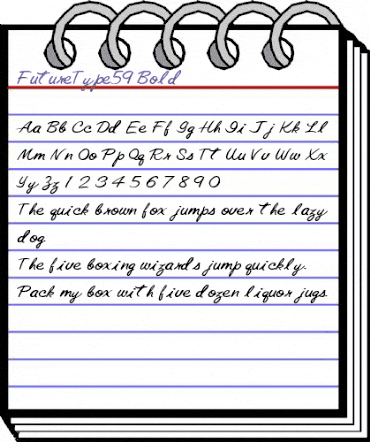 FutureType59 Bold
Aa Bb Cc Dd Ee Ff Gg Hh Ii Jj Kk Ll
Mm Nn Oo Pp Qq Rr Ss Tt Uu Vv Ww Xx
Yy Zz 1 2 3 4 5 6 7 8 9 0
The quick brown fox jumps over the lazy
dog
The five boxing wizards jump quickly.
Pack my box with five dozen liquor jugs.